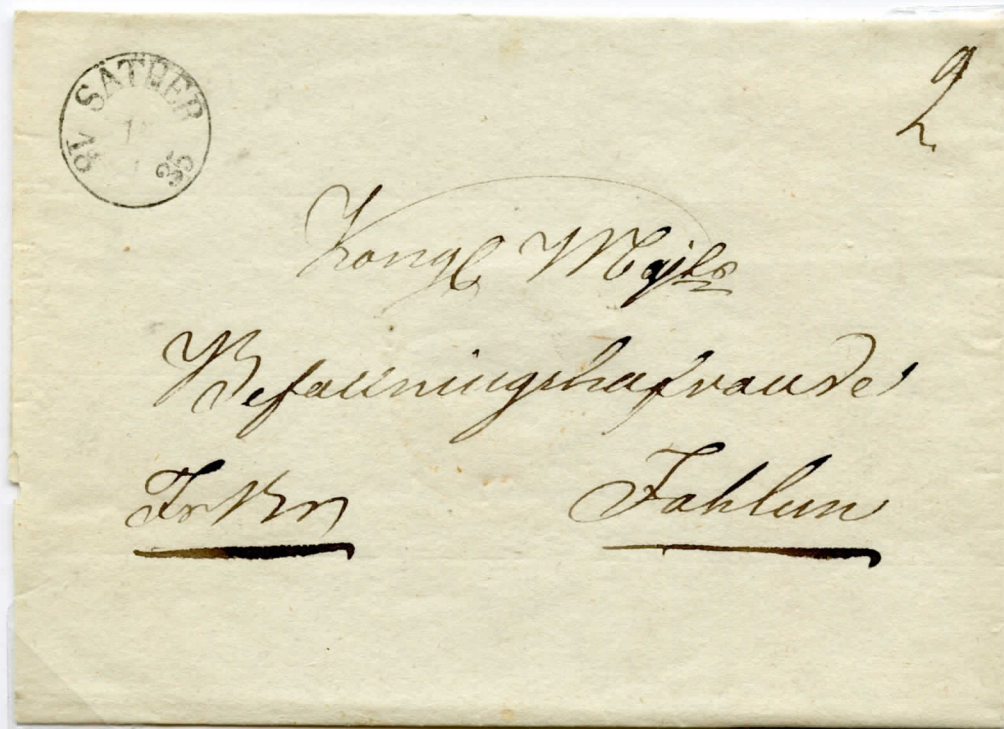 SÄTHER
18 35
2
Kongl Majts
Befallningshafvande
FrBr Fahlun